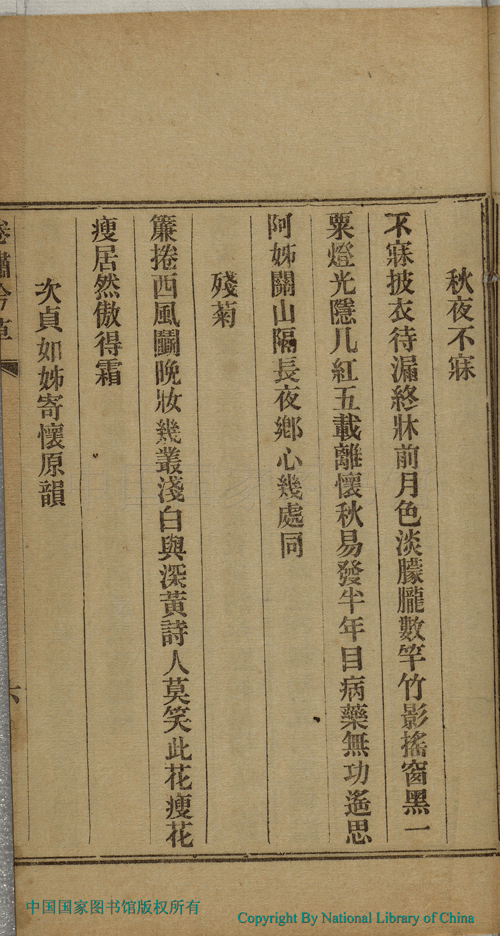 秋夜不寐
不寐披衣待漏終牀前月色淡朦朧數竿竹影搖窗黑一
粟燈光隱几紅五載離懷秋易發半年目病藥無功遙思
阿姊關山隔長夜鄉心幾處同
殘菊
簾捲西風鬭晚妝幾叢淺白與深黃詩人莫笑此花瘦花
瘦居然傲得霜
次貞如姊寄懷原韻
六
中国国家图书馆版权所有
Copyright By National Library of China